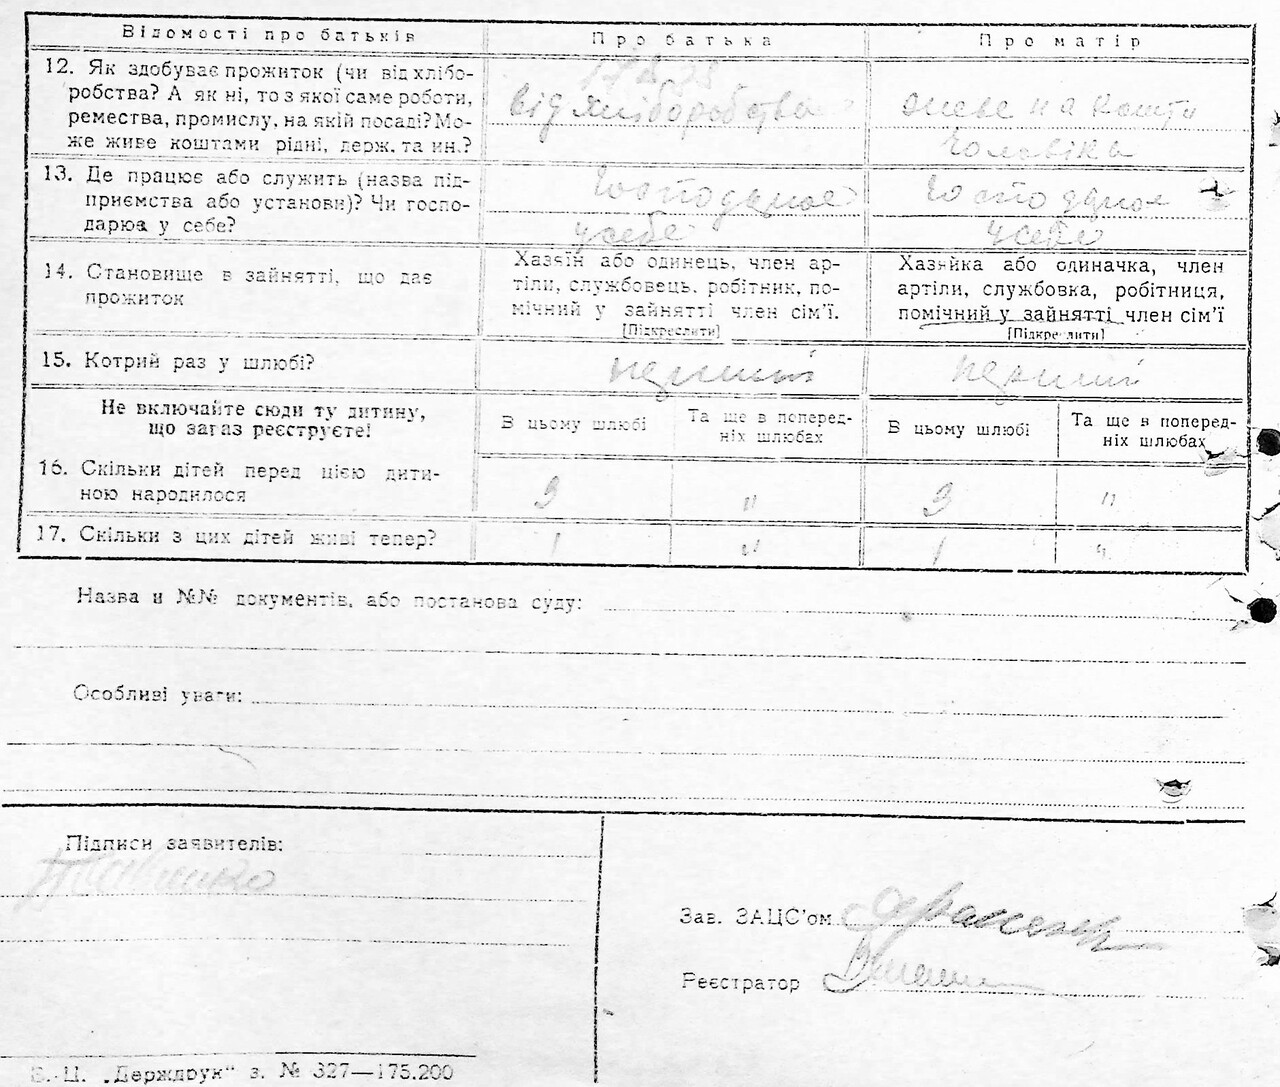 Відомості про батьків
Про батька
Про матір
12. Як здобуває прожиток (чи від хлібо-
робства? А як ні, то з якої саме роботи,
ремества, промислу, на якій посаді? Мо-
же живе коштами рідні, держ. та ин.?
від хліборобства
живе на кошти
чоловіка
13. Де працює або служить (назва під-
приємства або установи)? Чи госпо-
дарює у себе?
Господарює
у себе
Господарює
у себе
14. Становище в зайнятті, що дає
прожиток
Хазяїн або одинець, член ар-
тіли, службовець, робітник, по-
мічний у зайнятті член сім'ї.
[Підкреслити]
Хазяйка або одиначка, член
артіли, службовка, робітниця,
помічний у зайнятті член сім'ї
[Підкреслити]
15. Котрий раз у шлюбі?
перший
перший
Не включайте сюди ту дитину,
що загаз реєструєте!
В цьому шлюбі
Та ще в поперед-
ніх шлюбах
В цьому шлюбі
Та ще в поперед-
ніх шлюбах
16. Скільки дітей перед цією дити-
ною народилося
"
"
17. Скільки з цих дітей живі тепер?
1
"
1
"
Назва и №№ документів, або постанова суду:
Особливі уваги:
Підписи заявителів:
Зав. ЗАЦС'ом
Реєстратор
В.-Ц. „Держдрук" з. № 327—175.200